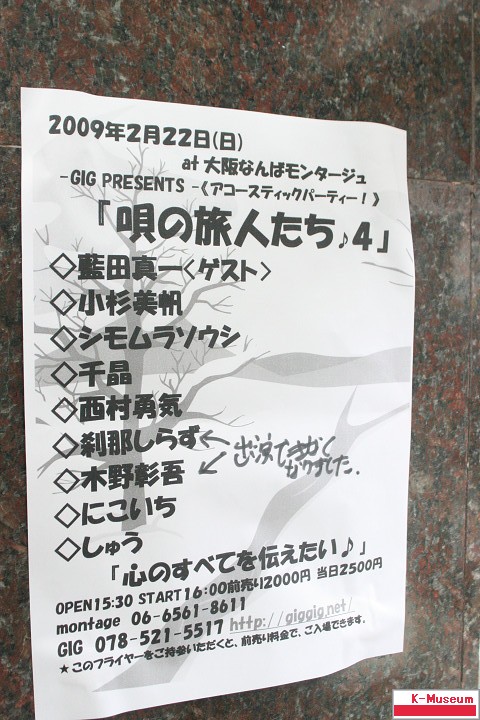 2009年2月22日(日)
at 大阪なんばモンタージュ
-GIG PRESENTS -《アコースティックパーティー！》
「唄の旅人たち♪4」
◇藍田真一<ゲスト>
◇小杉美帆
◇シモムラソウシ
◇千晶
◇西村勇気
◇刹那しらず
◇木野彰吾
◇にこいち
◇しゅう
「心のすべてを伝えたい♪」
OPEN15:30 START16:00前売り2000円 当日2500円
montage 06-6561-8611
GIG 078-521-5517 http://giggig.net/
★このフライヤーをご持参いただくと、前売り料金で、ご入場できます。
K-Museum